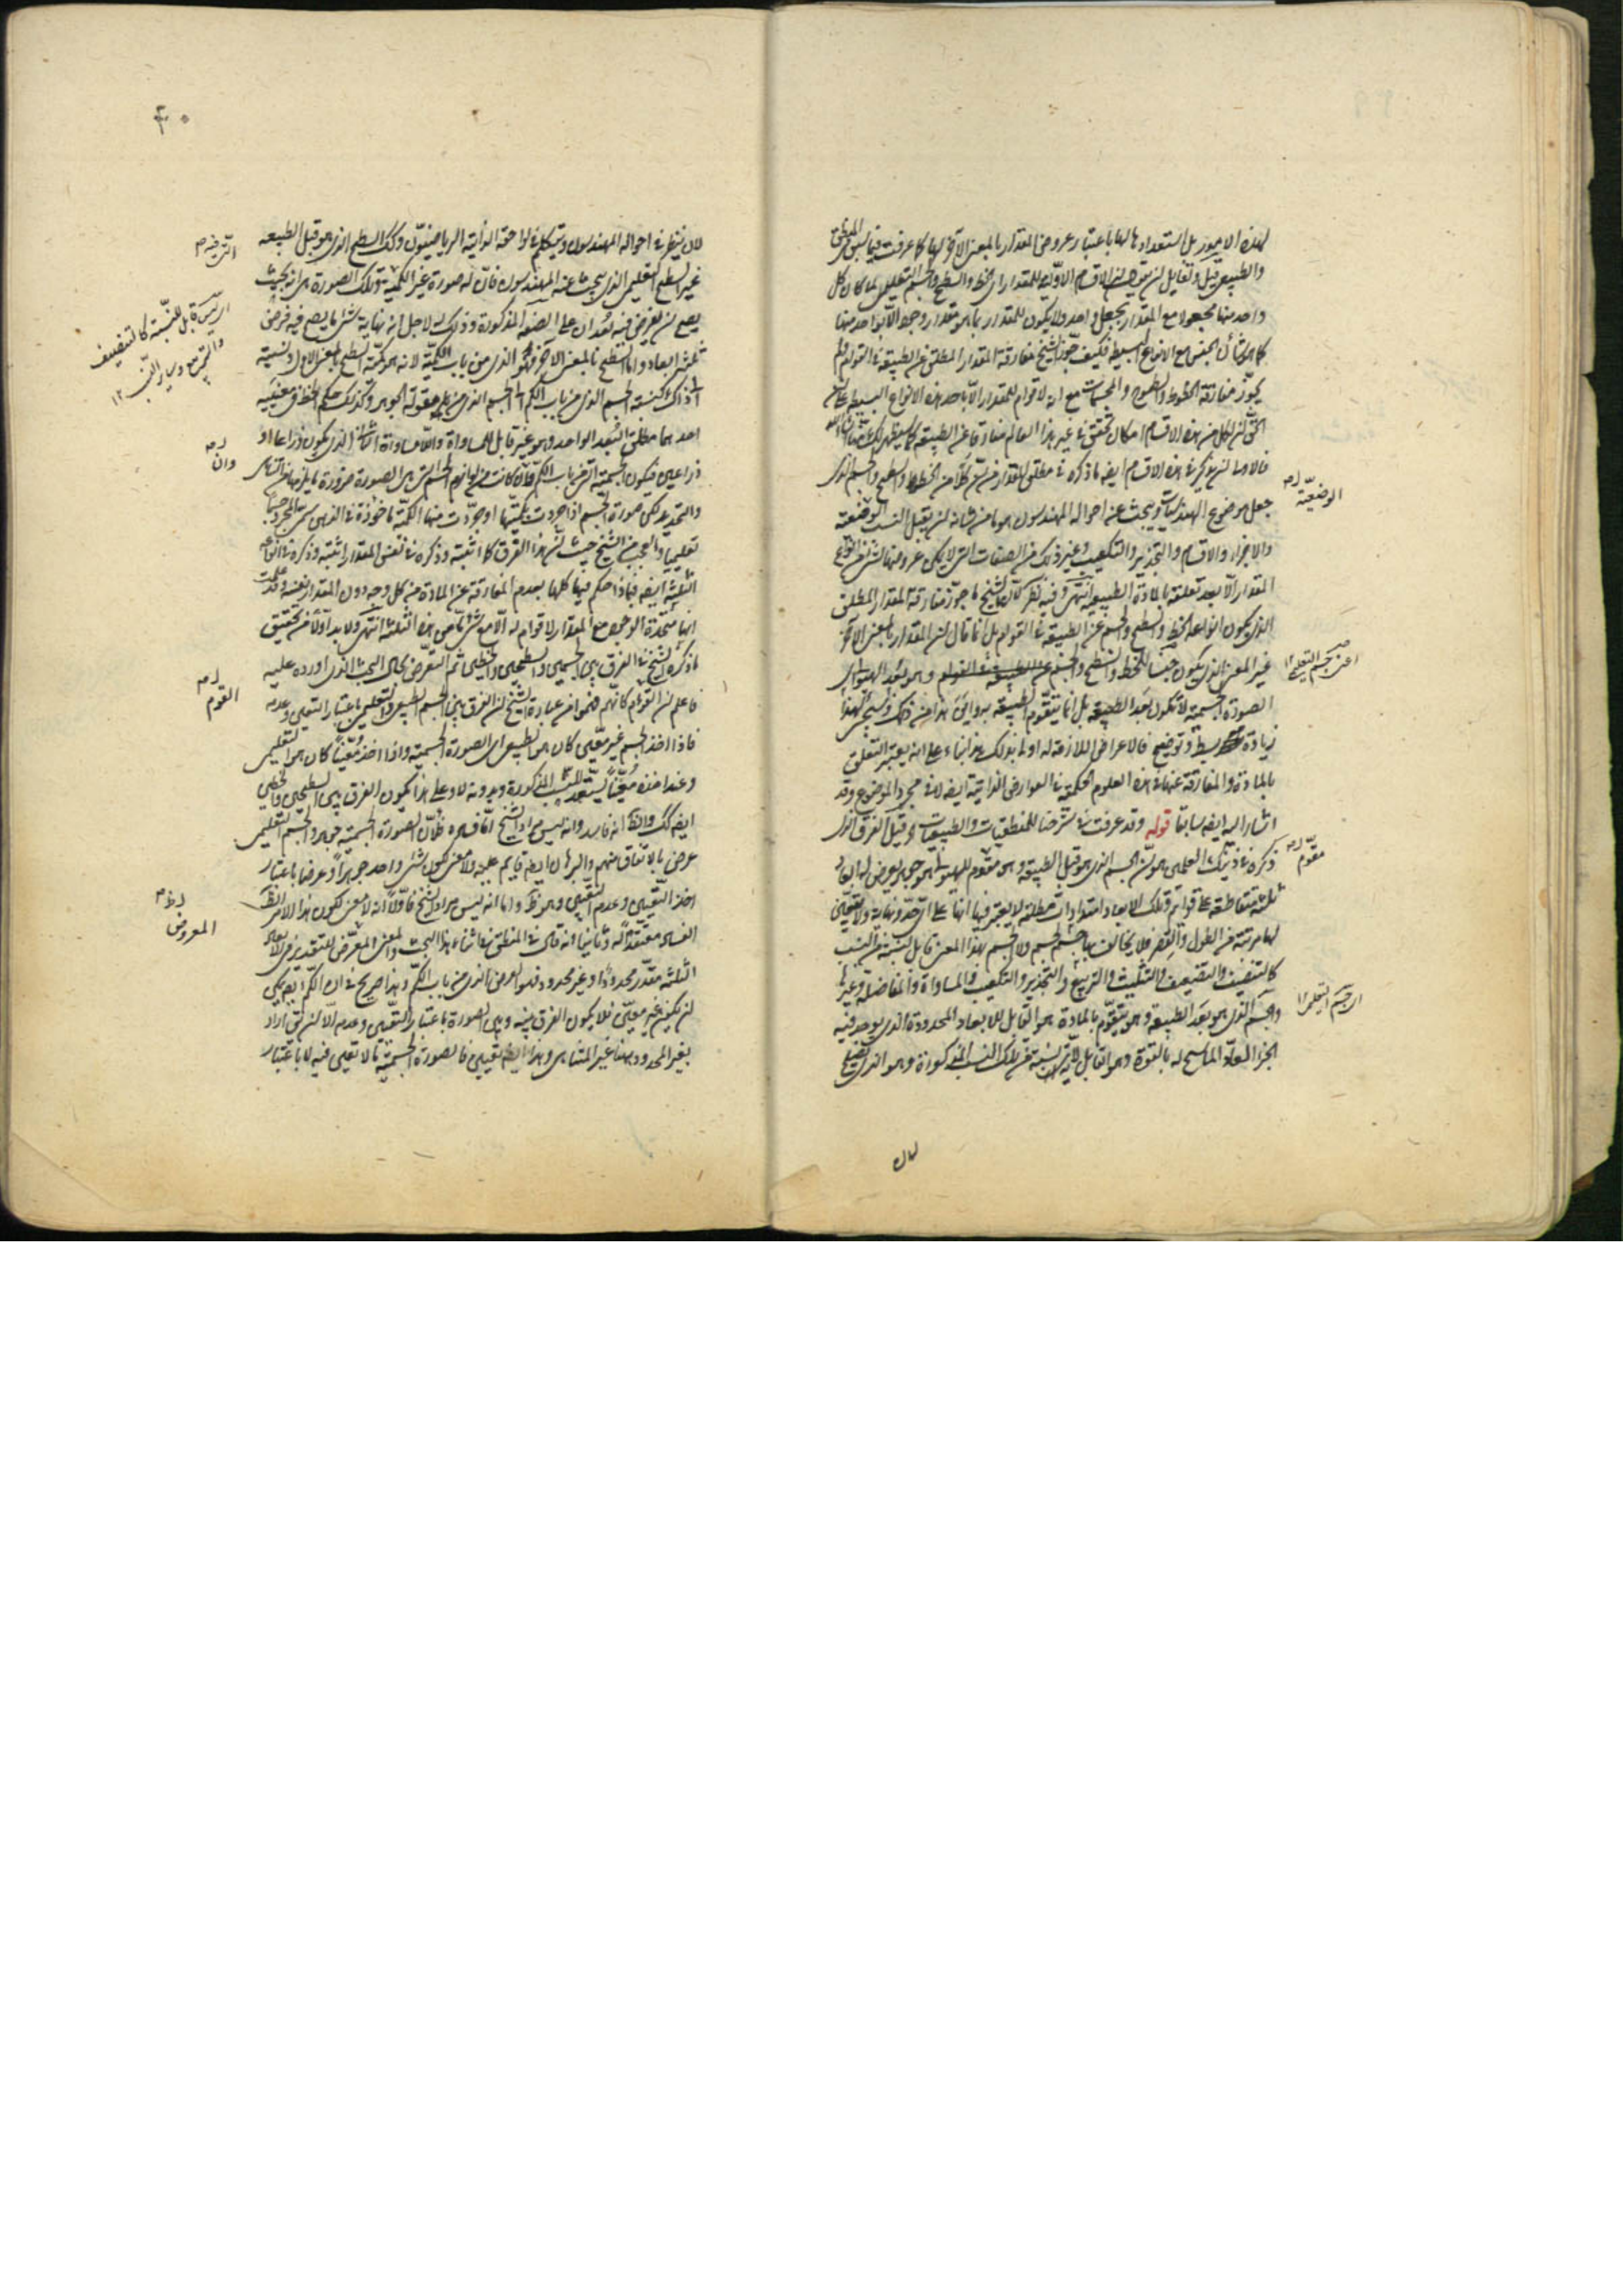 لهذه الامور بل استعدادها لها باعتبار عروض المقدار بالمعنى الآخر لها كما عرفت فيما سبق المنطق
والطبيعى قيل ولقايل ان يقول الاقسام الاولية للمقدار اى الخط والسطح والجسم التعليمى لما كان كل
واحد منها مجعولا مع المقدار بجعل واحد ولا يكون للمقدار بما هو مقدار وجود الا بواحد منها
كما هو شأن الجنس مع الانواع البسيطة فكيف جوز الشيخ مفارقة المقدار المطلق عن الطبيعة فى القوام ولم
يجوز مفارقة الخطوط والسطوح والمجسمات مع انه لا قوام للمقدار الا باحد هذه الانواع البسيطة
لكل من هذه الاقسام امكان تحقق فى غير هذا العالم مفارقا عن الطبيعة كما سيظهر لك
فالاولى ان يذكر فى هذه الاقسام ايضه ما ذكره فى مطلق المقدار من ان كلا من الخط والسطح والجسم الذى
جعل موضوع الهندسيات ويبحث عنه احواله المهندسون هو ما من شانه ان يقبل النسب الوضعية
والاجزاء والاقسام والتجذير والتكعيب وغير ذلك من الصفات التى لا يمكن عروضها لشئ من انواع
المقدار الا بعد تعلقه بالمادة الطبيعية انتهى وفيه نظر لان الشيخ ما جوز مفارقة المقدار المطلق
الذى يكون انواعه الخط والسطح والجسم عن الطبيعة فى القوام بل انما قال ان المقدار بالمعنى الآخر
غير المعنى الذى يكون جنسا للخط والسطح والجسم وهو بعد الهيولى اى
الصورة الجسمية لا تكون بعد الطبيعة بل انما يتقوم الطبيعة به واين هذا من ذلك وسيجئ لهذا
زيادة بسط وتوضيح فالاعراض اللازمة له اولى بذلك هذا بناء على انه يعتبر التعلق
بالمادة والمفارقة عنها فى هذه العلوم الحكمية فى العوارض الذاتية ايضه لا فى مجرد الموضوع وقد
اشار اليه ايضه سابقا قوله وقد عرفت فى شرحنا للمنطقيات والطبيعيات قيل الفرق الذى
ذكره فى ذينك العلمين هو ان الجسم الذى هو قبل الطبيعة وهو مقوم للهيولى هو جوهر يعرض له ابعاد
ثلثة متقاطعة على قوائم وتلك الابعاد امتدادات مطلقة لا يعتبر فيها انها على اى حد ونهاية ولا تعين
لها مرتبة من الطول والقصر فلا يخالف بها جسم لجسم ولا الجسم بهذا المعنى قابل لنسبة من النسب
كالتنصيف والتضعيف والتثليث والتربيع والتجذير والتكعيب والمساواة والمفاضلة وغيرها
والجسم الذى هو بعد الطبيعة وهو يتقوم بالمادة هو القابل للابعاد المحدودة الذى يوجد فيه
الجزء العاد الماسح له بالقوة وهو القابل لاية نسبة من تلك النسب المذكورة وهو الذى
لان
الوضعية
اعنى جسم التعليمى ١٢
مقوم
اى جسم التعليمى ١٢
٤٠
لان ينظر فى احواله المهندسون ويتكلم فى لواحقه الذاتية الرياضيون وكك السطح الذى هو قبل الطبيعة
غير السطح التعليمى الذى يبحث عنه المهندسون فان له صورة غير الكمية وتلك الصورة هى انه بحيث
يصح ان يفرض فيه بعدان على الصفة المذكورة وذلك له لاجل انه نهاية شئ ما يصح فيه فرض
ثلثة ابعاد واما السطح بالمعنى الآخر فهو الذى من باب الكمية لانه هو كمية السطح بالمعنى الاول ونسبته
الى ذاك كنسبة الجسم الذى من باب الكم الى الجسم الذى من مقولة الجوهر وكذلك حكم الخط فى معنييه
احدهما مطلق البعد الواحد وهو غير قابل للمساواة واللامساواة الثانى الذى يكون ذراعا او
ذراعين فيكون الجسمية التى من باب الكم وان كانت من لوازم الجسم التى هى الصورة ضرورة ما يلزمها من التناهى
والتحديد لكن صورة الجسم اذا جردت بكميتها او جردت منها الكمية ماخوذة فى الذهن سمى المجرد جسما
تعليميا والعجب من الشيخ حيث ان هذا الفرق كما اثبته وذكره فى نفس المقدار اثبته وذكره فى انواعه
الثلثة ايضه فماذا حكم فيها كلها بعدم المفارقة عن المادة من كل وجه دون المقدار نفسه وقد علمت
انها متحدة الوجود مع المقدار لا قوام له الا مع شئ ما من هذه الثلثة انتهى ولا بد اولا من تحقيق
ما ذكره الشيخ فى الفرق بين الجسمين والسطحين والخطين ثم التعرض لحال البحث الذى اورده عليه
فاعلم ان القوم كانهم فهموا من عبارة الشيخ ان الفرق بين الجسم الطبيعى والتعليمى باعتبار التعين وعدمه
فاذا اخذ الجسم غير معين كان هو الطبيعى اى الصورة الجسمية واذا اخذ معينا كان هو التعليمى
وعند اخذه معينا يستعد للنسب المذكورة وبدونه لا وعلى هذا يكون الفرق بين السطحين والخطين
ايضه كك والظ انه فاسد وانه ليس مراد الشيخ اما فساده فلان الصورة الجسمية جوهر والجسم التعليمى
عرض بالاتفاق منهم والبرهان ايضه قايم عليه ولا معنى لكون شئ واحد جوهرا وعرضا باعتبار
اخذ التعين وعدم التعين وهو ظ واما انه ليس مراد الشيخ فاولا انه لا معنى لكون هذا الامر الظ
الفساد معتقدا له وثانيا انه قال فى المنطق فى اثناء هذا البحث والمعنى المعرض للتقدير من الابعاد
الثلثة مقدر محدودا او غير محدود فهو العرض الذى من باب الكم وهذا صريح فى ان الكم ايضه يمكن
ان يكون غير معين فلا يكون الفرق بينه وبين الصورة باعتبار التعين وعدمه الا ان يق اراد
بغير المحدود هنا غير المتناهى وهذا ايضه تعيين فالصورة الجسمية ما لا تعين فيه لا باعتبار
وان
القوم
المعروض